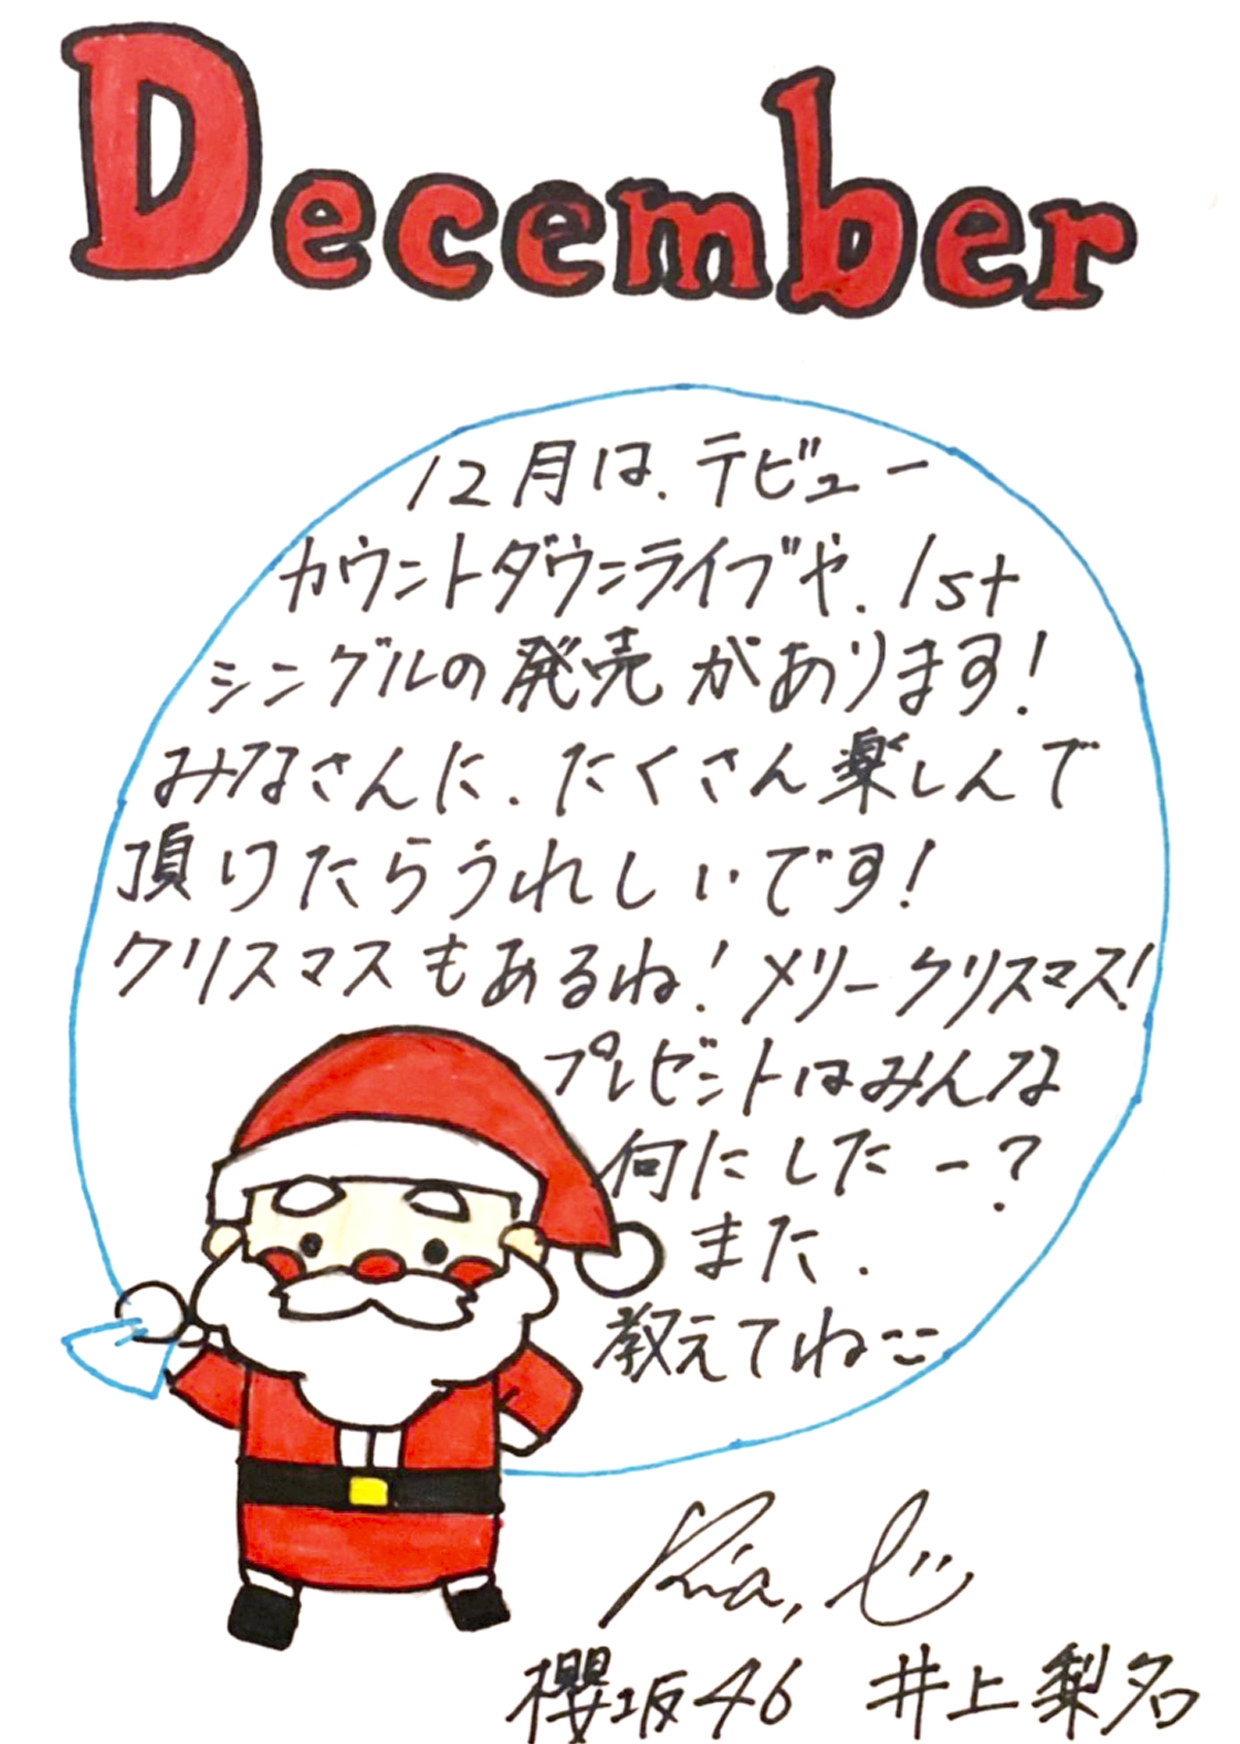 December
12月は、デビュー
カウントダウンライブや、1st
シングルの発売があります!
みなさんに、たくさん楽しんで
頂けたらうれしいです!
クリスマスもあるね!メリークリスマス!
プレゼントはみんな
何にしたー?
また、
教えてね
Rina,
櫻坂46 井上梨名